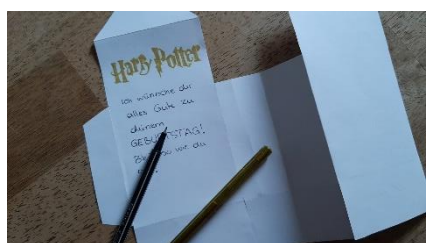 Harry Potter
Ich wünsche dir
alles Gute zu
deinem
GEBURTSTAG!
so wie du